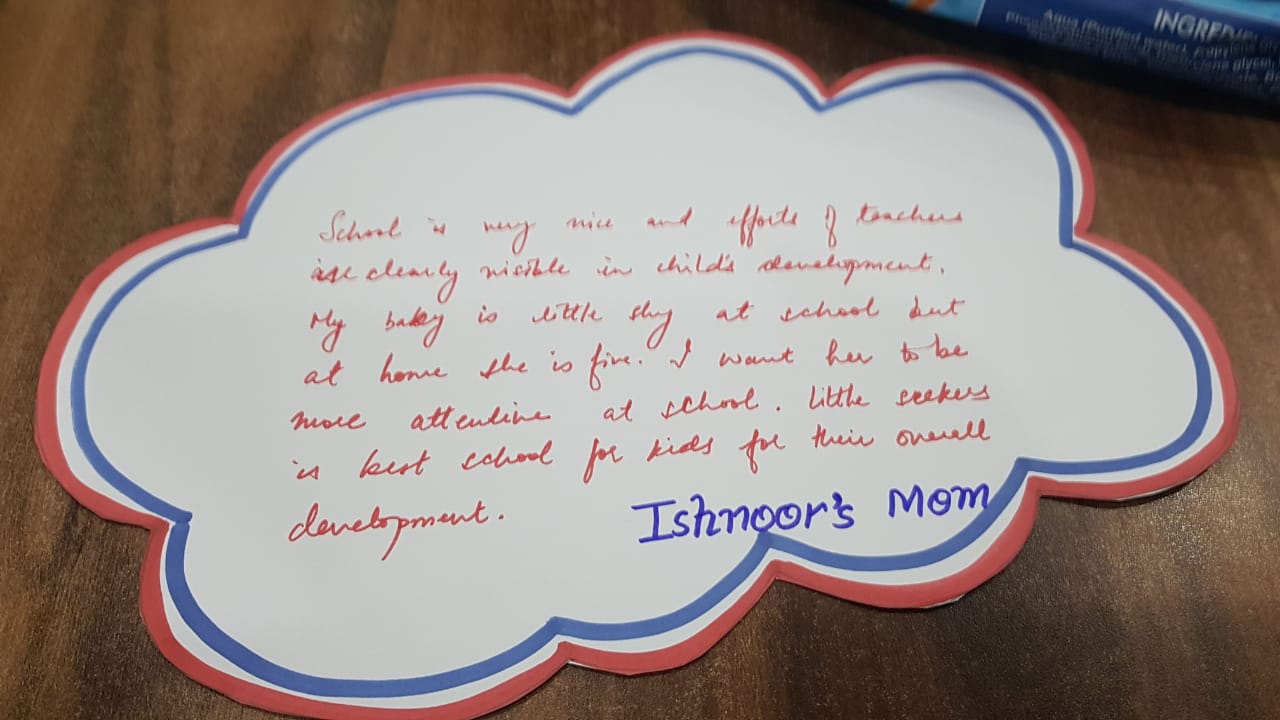 INGREDIE
Aqua (Purified water),
School is very nice and efforts of teachers
are clearly visible in child's development.
My baby is little shy at school but
at home she is fine. I want her to be
more attentive at school. Little seekers
is best school for kids for their overall
development.
Ishnoor's Mom